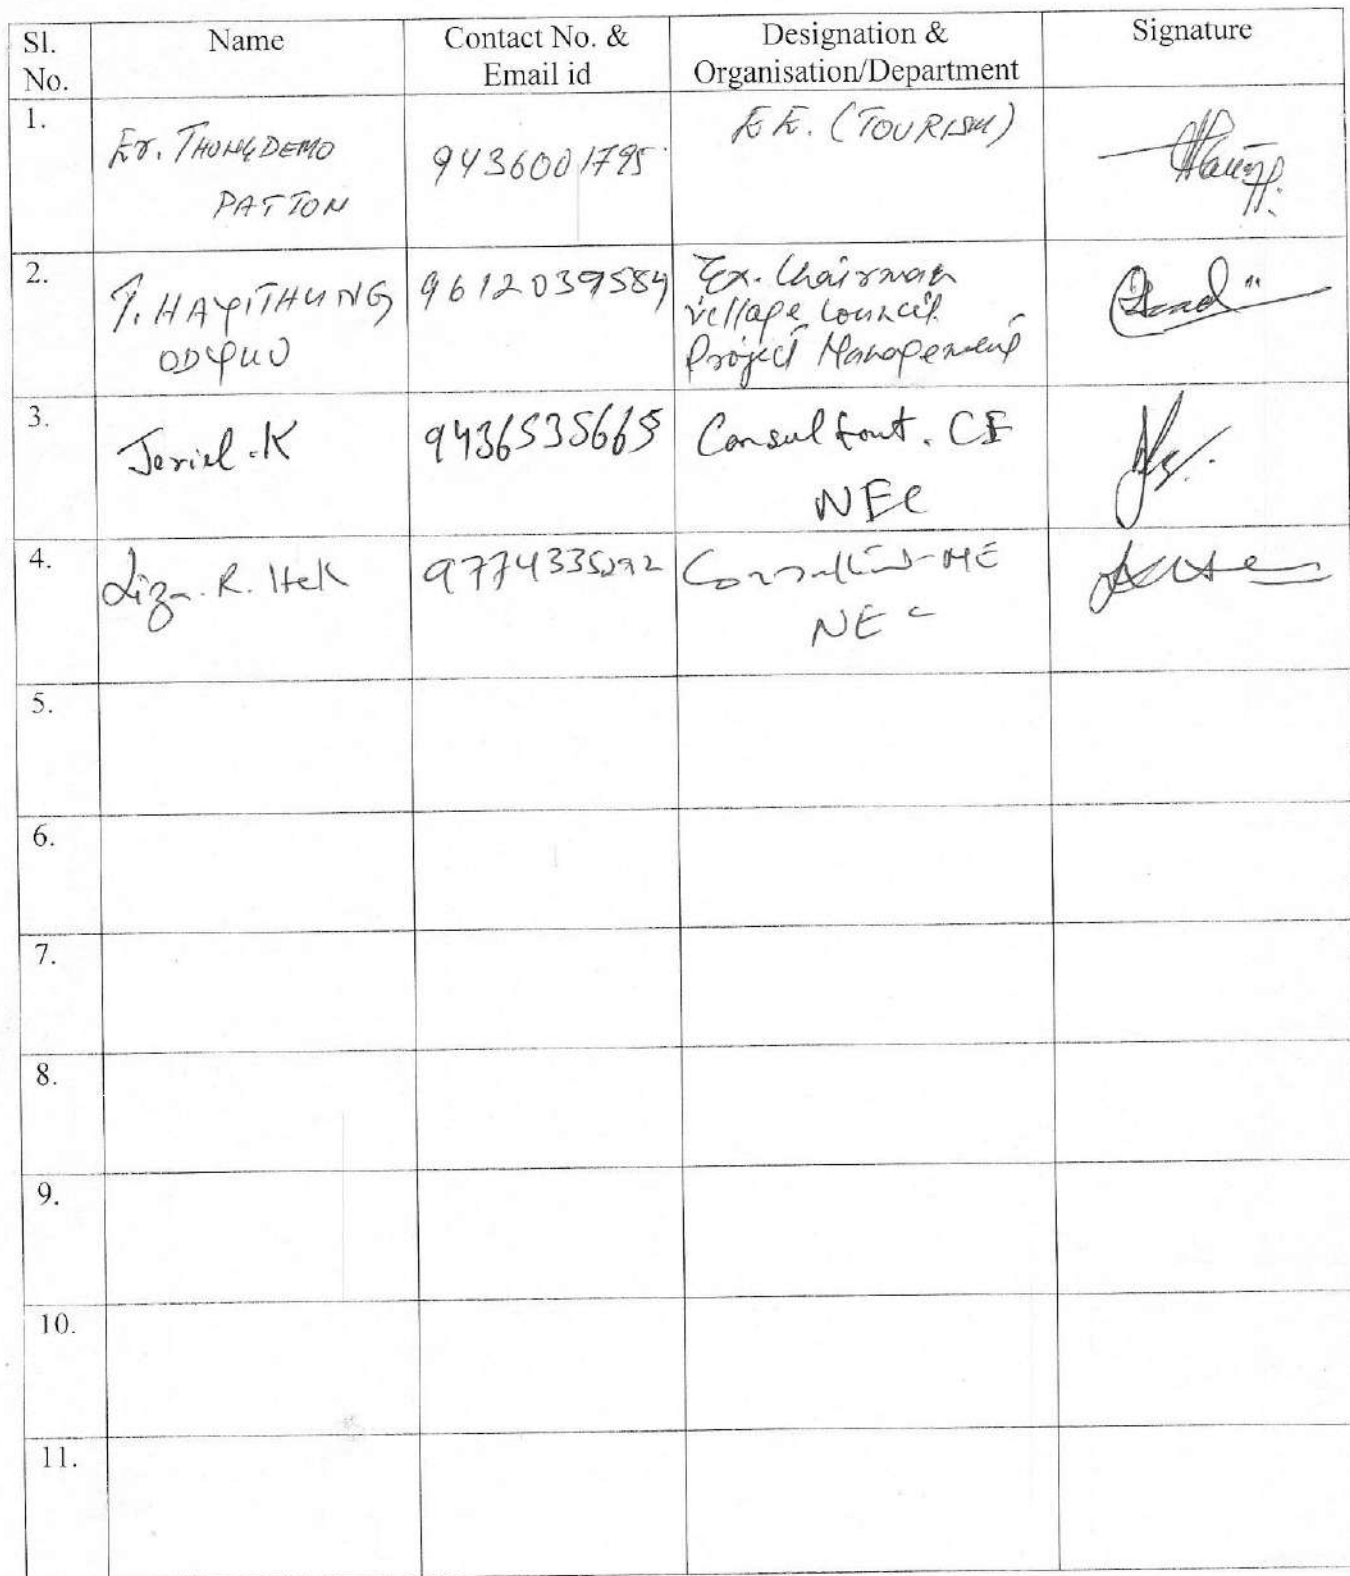 Sl. No. Name Contact No. & Email id Designation & Organisation/Department Signature
1. Er. THUNGDEMO PATTON 9436001795 E.E. (TOURISM)
2. T. HAYITHUNG ODYUO 9612039584 Ex. Chairman village Council Project Management
3. Jeriel. K 9436535665 Consultant. CE NEC
4. Liza. R. Hek Consultant-ME NEC
5.
6.
7.
8.
9.
10.
11.